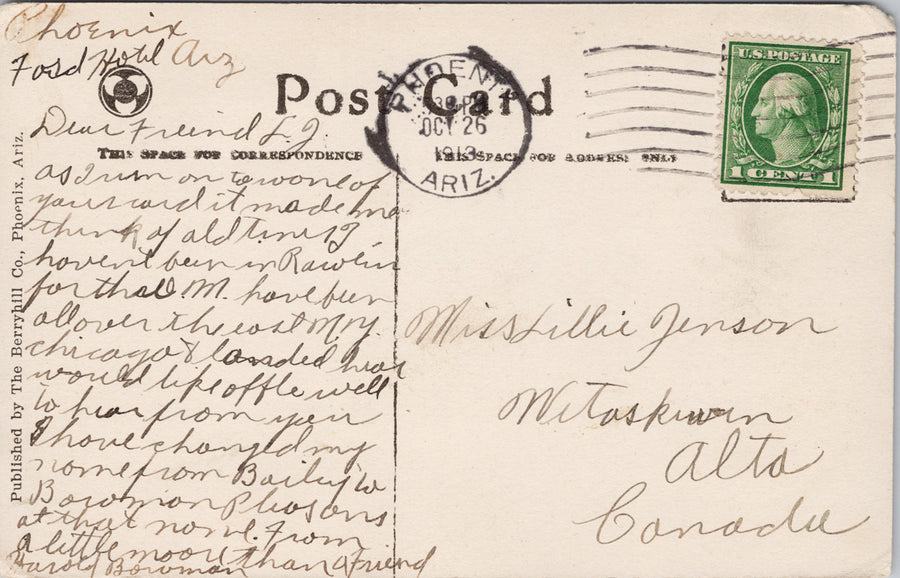 Phoenix
Ford Hotel Ariz
Post Card
PHOENIX
30 PM
OCT 26
1913
ARIZ.
U.S. POSTAGE
1 CENT 1
THIS SPACE FOR CORRESPONDENCE
THIS SPACE FOR ADDRESS ONLY
Dear Freind L.J.
as I run on to wone of
your card it made me
think of old times I
haven't been in Rawlin
for that
have been
all over the east N.Y.
chicago & landed hear
would like offle well
to hear from you
I have changed my
name from Baily to
Bowman Pleas ans
at that name. From
a little moore than a Friend
Harold Bowman
Miss Lillie Jenson
Witaskwin
Alta
Canada
Published by The Berryhill Co., Phoenix, Ariz.